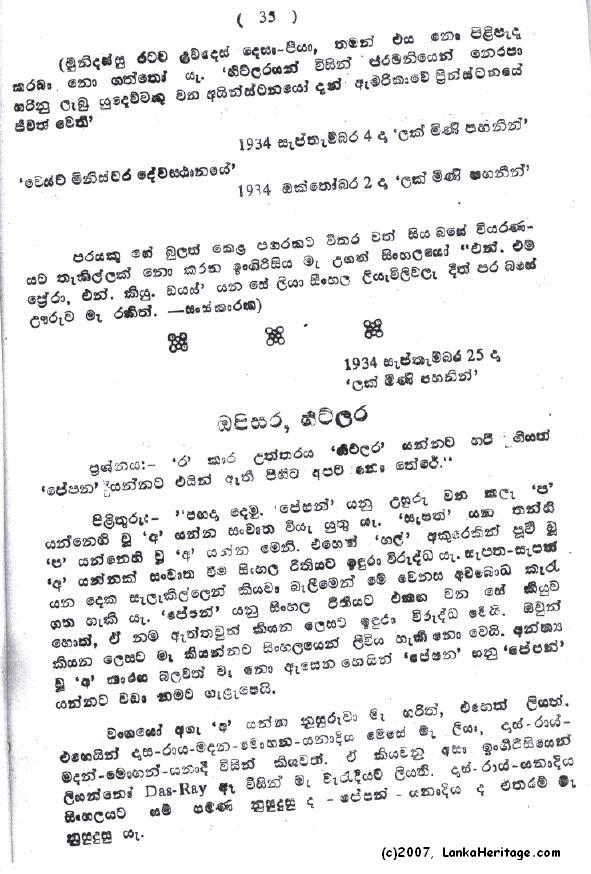 ( 35 )
(මුනිදස්සු රටට ළවදෙස් දෙසා-පියා, තමන් එය නො පිළිපැද
කරබා නො ගත්තෝ යැ. 'හිට්ලරගන් විසින් ජර්මනියෙන් නෙරපා
හරිනු ලැබූ යුදෙව්වකු වන අයින්ස්ටනයෝ දැන් ඇමරිකාවේ ප්‍රින්ස්ටනයේ
ජීවත් වෙති'
1934 සැප්තැම්බර 4 දා 'ලක් මිණි පහනින්'
'වෙස්ට මිනිස්ටර දේවස්ථානයේ'
1934 ඔක්තෝබර 2 දා 'ලක් මිණි පහනින්'
පරයකු ගේ බුලත් කෙළ පහරකට විතර වත් සිය බසේ වියරණ-
යට තැකිල්ලක් නො කරන ඉංගිරිසිය මැ උගත් සිංහලයෝ "එන්. එම්
ප්‍රේරා, එන්. කියු. ඩයස්' යන සේ ලියා සිංහල ලියැවිලිවලැ දීත් පර බසේ
උරුව මැ රකිත්. —සංස්කාරක)
1934 සැප්තැම්බර 25 දා
'ලක් මිණි පහනින්'
ඔපිසර, හිට්ලර
ප්‍රශ්නය:- 'ර' කාර උත්තරය 'හිට්ලර' යන්නට හරි ගියත්
'පේපන' යන්නට එයින් ඇති පිහිට අපට නො තේරේ."
පිළිතුරු:- "පහදා දෙමු. 'පේපන්' යනු උහුරු වන කලැ 'ප'
යන්නෙහි වූ 'අ' යන්න සංවෘත විය යුතු යැ. 'සැපත්' යන තන්හි
'ප' යන්නෙහි වූ 'අ' යන්න මෙනි. එහෙත් 'හල්' අකුරෙකින් පූර්ව වූ
'අ' යන්නක් සංවෘත වීම සිංහල රීතියට ඉඳුරා විරුද්ධ යැ. සැපත-සැපත්
යන දෙක සැලැකිල්ලෙන් කියවා බැලීමෙන් මේ වෙනස අවබෝධ කැරැ
ගත හැකි යැ. 'පේපන්' යනු සිංහල රීතියට එකඟ වන සේ කියුව
හොත්, ඒ නම ඇත්තවුන් කියන ලෙසට ඉඳුරා විරුද්ධ වෙයි. ඔවුන්
කියන ලෙසට මැ කියන්නට සිංහලයෙන් ලිවිය හැකි නො වෙයි. අන්ත්‍ය
වූ 'අ' කාරය බලවත් වැ නො ඇසෙන හෙයින් 'පේපන' යනු 'පේපන්'
යන්නට වඩා නමට ගැළැපෙයි.
වංගයෝ අගැ 'අ' යන්න නුසුරුවා මැ හරිත්, එහෙත් ලියත්.
එහෙයින් දාස-රාය-මදන-මොහන-යනාදිය මෙසේ මැ ලියා, දාස්-රාය්-
මදන්-මොහන්-යනාදී විසින් කියවත්. ඒ කියවනු අසා ඉංගිරිසියෙන්
ලියන්නෝ Das-Ray ඈ විසින් මැ වැරැදියට ලියති. දාස්-රාය්-යනාදිය
සිංහලයට යම් පමණ නුසුදුසු ද - පේපන් - යනාදිය ද එතරම් මැ
නුසුදුසු යැ.
(c)2007, LankaHeritage.com